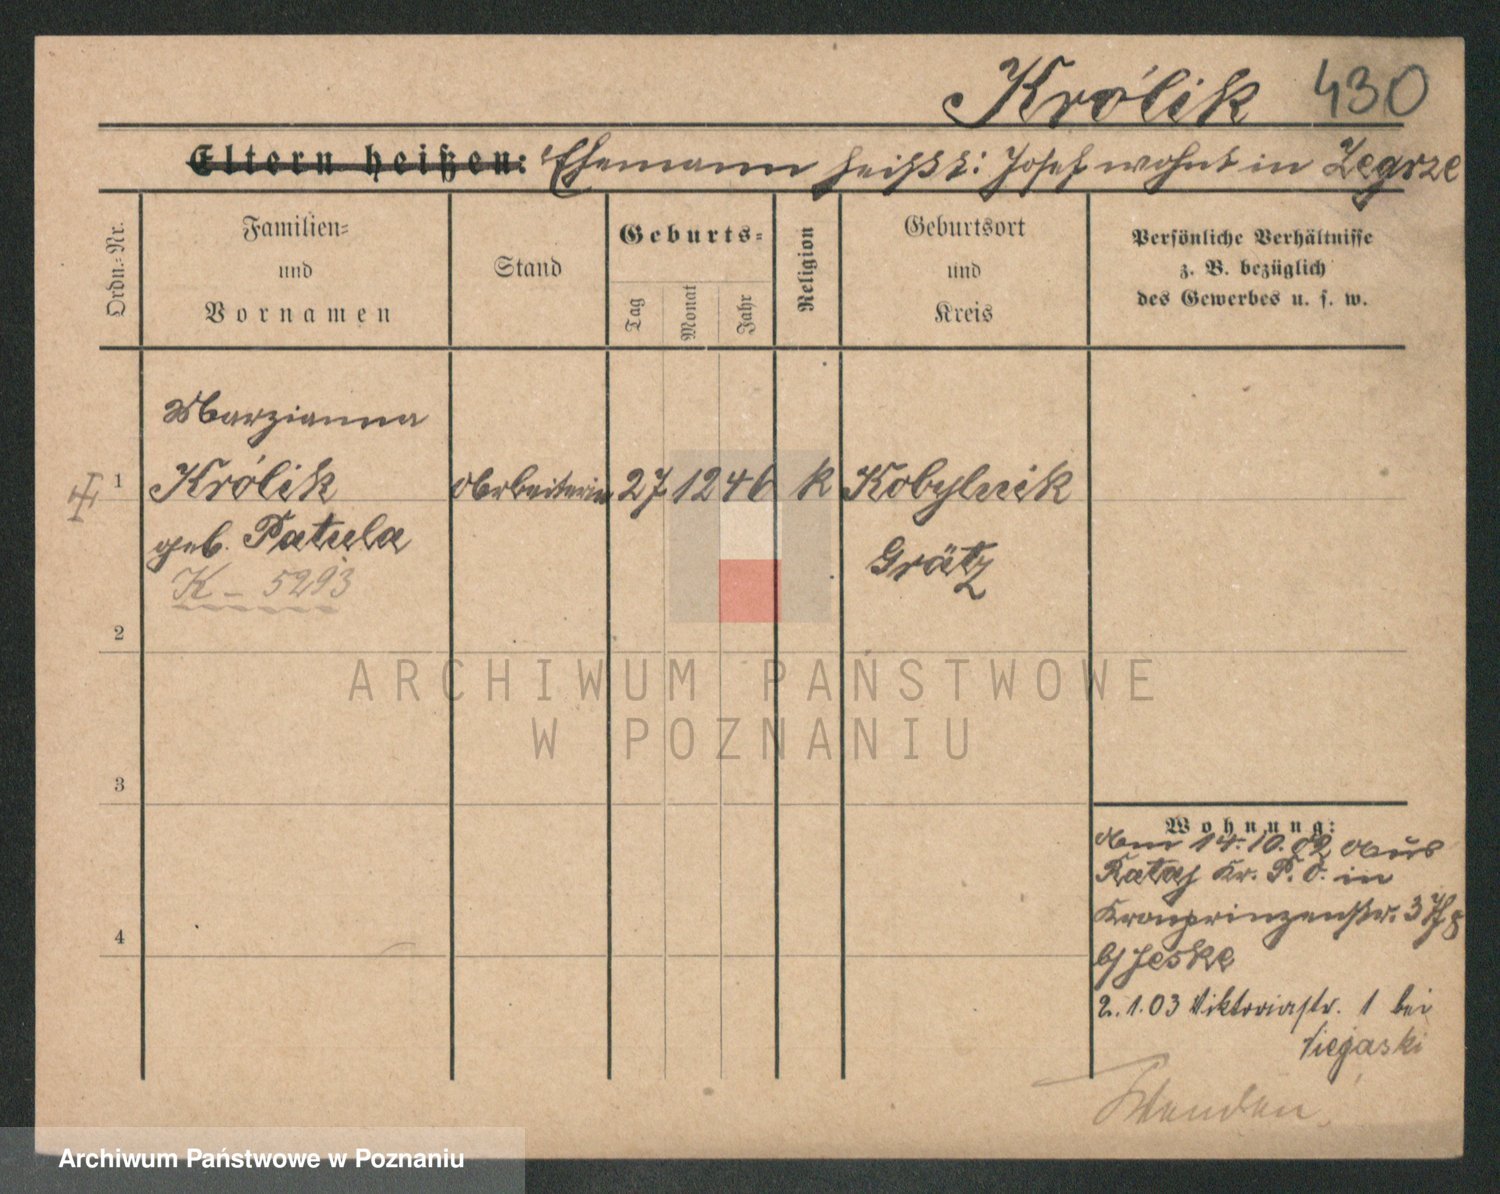 Królik 430
Eltern heißen: Ehemann heißt: Josef wohnt in Zegrze
Ordn.-Nr.
Familien-
und
Vornamen
Stand
Geburts-
Tag
Monat
Jahr
Religion
Geburtsort
und
Kreis
Persönliche Verhältnisse
z. B. bezüglich
des Gewerbes u. s. w.
Marzianna
1 Królik Arbeiterin 27 12 46 k Kobylnik
geb. Patula Grätz
K - 5293
2
3
4
Wohnung:
am 14.10.02 aus
Rataj Kr. P. O. in
Kronprinzenstr. 3
bj Jeske
2.1.03 Viktoriastr. 1 bei
ARCHIWUM PAŃSTWOWE
W POZNANIU
Archiwum Państwowe w Poznaniu